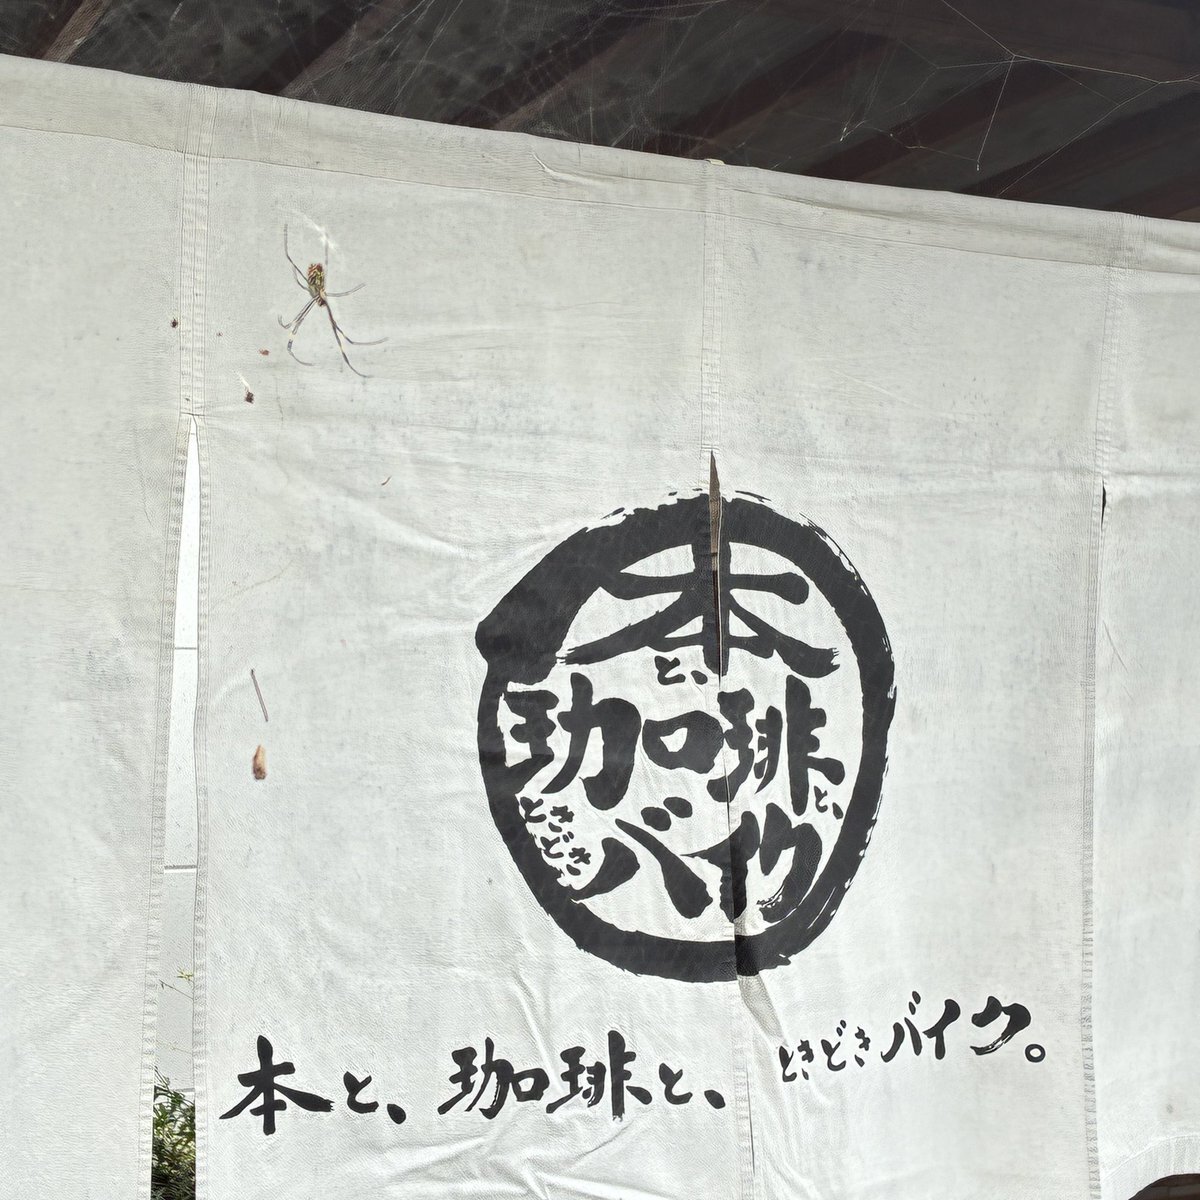 本と、
珈琲と、
ときどき
バイク
本と、珈琲と、ときどきバイク。